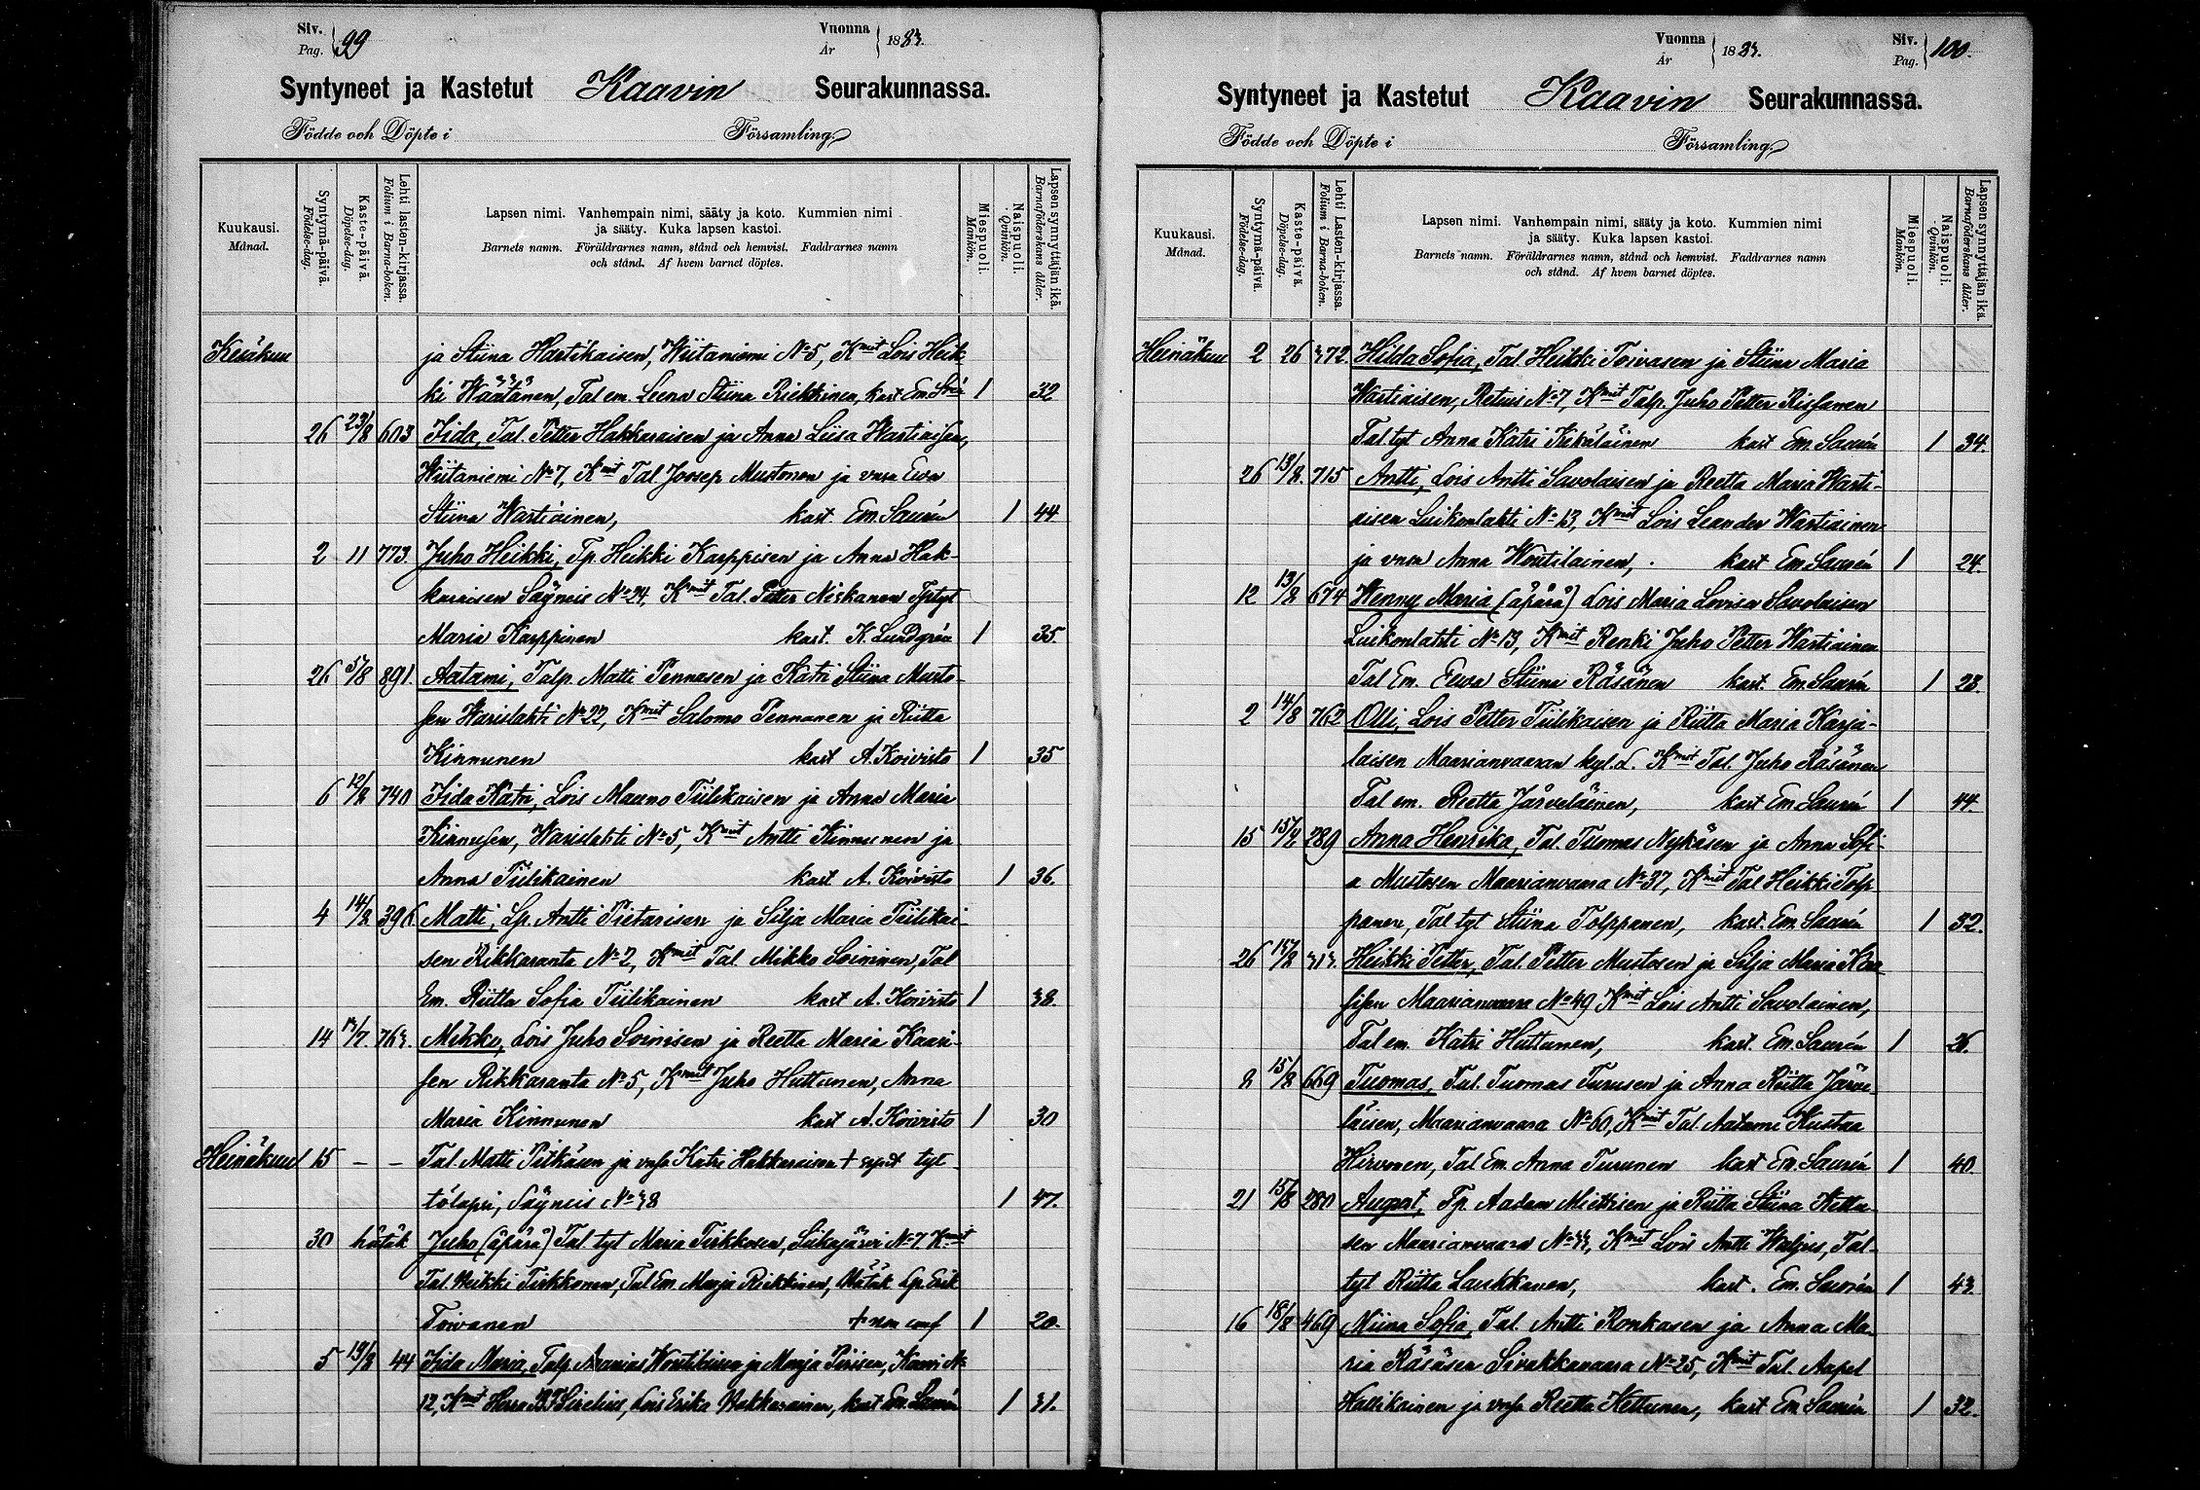 Siv.
Pag. 99
Vuonna
År 1883.
Syntyneet ja Kastetut Kaavin Seurakunnassa.
Födde och Döpte i Församling.
Kuukausi.
Månad.
Syntymä-päivä.
Födelse-dag.
Kaste-päivä.
Döpelse-dag.
Lehti lasten-kirjassa.
Folium i Barna-boken.
Lapsen nimi. Vanhempain nimi, sääty ja koto. Kummien nimi
ja sääty. Kuka lapsen kastoi.
Barnets namn. Föräldrarnes namn, stånd och hemvist. Faddrarnes namn
och stånd. Af hvem barnet döptes.
Miespuoli.
Mankön.
Naispuoli.
Qvinkön.
Lapsen synnyttäjän ikä.
Barnaföderskans ålder.
Kesäkuu ja Stiina Hartikaisen, Wiitaniemi No 5, Kmit Lois Heik-
ki Wäätänen, Tal em. Leena Stiina Riekkinen, kast. Em. 1 32
26 23/8 603 Iida, Tal. Petter Hakkaraisen ja Anna Liisa Wartiaisen,
Wiitaniemi No 7, Kmit Tal Joosep Mustonen ja vmsa Ewa
Stiina Wartiainen, kast. Em. Saurén 1 44
2 11 773. Juho Heikki, Tp. Heikki Karppisen ja Anna Hak-
karaisen Säyneis No 24, Kmit Tal. Petter Niskanen Tptyt
Maria Karppinen kast. K. Lundgrén 1 35
26 5/8 891. Aatami, Talp. Matti Pennasen ja Katri Stiina Musto-
sen Warislahti No 22, Kmit Salomo Pennanen ja Riitta
Kinnunen kast A. Koivisto 1 35
6 12/8 740 Iida Katri, Lois Mauno Tiilikaisen ja Anna Maria
Kinnusen, Warislahti No 5, Kmit Antti Kinnunen ja
Anna Tiilikainen kast A. Koivisto 1 36.
4 14/8 396. Matti, Lp. Antti Pietarisen ja Silja Maria Tiilikai-
sen Rikkaranta No 2, Kmit Tal. Mikko Soininen, Tal
Em. Riitta Sofia Tiilikainen kast A. Koivisto 1 38.
14 763. Mikko, Lois Juho Soinisen ja Reetta Maria Kaari-
sen Rikkaranta No 5, Kmit Juho Huttunen, Anna
Maria Kinnunen kast A. Koivisto 1 30
Heinäkuu 15 - - Tal. Matti Pitkäsen ja vmsa Katri Hakkaraisen + tyt-
tölapsi, Säyneis No 38 1 47.
30 hätäk Juho (äpärä) Tal tyt Maria Tirkkosen, Siikajärvi No 7 Kmit
Tal. Heikki Tirkkonen, Tal Em. Marja Riekkinen, Hätäk Lp. Erik
Toivanen 1 20.
5 19/8 44 Iida Maria, Talp. Ananias Woutilaisen ja Marja Pirisen, Kaavi No
12, Kmit Herra B. F. Sirelius, Lois Erika Hakkarainen, kast Em. Saurén 1 31.
Vuonna
År 1883.
Siv.
Pag. 100.
Syntyneet ja Kastetut Kaavin Seurakunnassa.
Födde och Döpte i Församling.
Kuukausi.
Månad.
Syntymä-päivä.
Födelse-dag.
Kaste-päivä.
Döpelse-dag.
Lehti Lasten-kirjassa.
Folium i Barna-boken.
Lapsen nimi. Vanhempain nimi, sääty ja koto. Kummien nimi
ja sääty. Kuka lapsen kastoi.
Barnets namn. Föräldrarnes namn, stånd och hemvist. Faddrarnes namn
och stånd. Af hvem barnet döptes.
Miespuoli.
Mankön.
Naispuoli.
Qvinkön.
Lapsen synnyttäjän ikä.
Barnaföderskans ålder.
Heinäkuu 2 26 372. Hilda Sofia, Tal. Heikki Toivasen ja Stiina Maria
Wartiaisen, Retuis No 7, Kmit Talp. Juho Petter Rissanen
Tal tyt Anna Katri kast Em. Saurén 1 34.
26 13/8. 715 Antti, Lois Antti Savolaisen ja Reetta Maria Warti-
aisen Luikonlahti No 13, Kmit Lois Leander Wartiainen
ja vmsa Anna Woutilainen, kast Em Saurén 1 24.
12 13/8 674 Wenny Maria (äpärä) Lois Maria Lovisa Savolaisen
Luikonlahti No 13, Kmit Renki Juho Petter Wartiainen
Tal Em. Eewa Stiina Räsänen kast. Em. Saurén 1 23.
2 14/8 762 Olli, Lois Petter Tiilikaisen ja Riitta Maria Karja-
laisen Maarianvaaran kyl. l. Kmit Tal. Juho Räsänen
Tal em. Reetta Järveläinen, kast Em. Saurén 1 44.
15 15/8 289 Anna Henrika, Tal. Tuomas Nykäsen ja Anna Sofi-
a Mustosen Maarianvaara No 37, Kmit Tal Heikki Tolp-
panen, Tal tyt Stiina Tolppanen, kast. Em. Saurén 1 32.
26 15/8 313. Heikki Petter, Tal. Petter Mustosen ja Silja Maria
Maarianvaara No 49 Kmit Lois Antti Savolainen,
Tal em. Katri Huttunen, kast. Em. Saurén 1 26.
8 15/8 669 Tuomas, Tal. Tuomas Turusen ja Anna Riitta Järve-
läisen, Maarianvaara No 60, Kmit Tal. Aatami Kustaa
Hirvonen, Tal Em. Anna Turunen kast Em. Saurén 1 40.
21 15/8 280 August, Tp. Aadam Miettisen ja Riitta Stiina Kettu-
sen Maarianvaara No 33, Kmit Lois Antti Waljus, Tal-
tyt Riitta Laukkanen, kast. Em. Saurén 1 43
16 18/8 469 Miina Sofia, Tal. Antti Ronkasen ja Anna Ma-
ria Räsäsen Sivakkavaara No 25, Kmit Tal. Aapel
Hallikainen ja vmsa Reetta Kettunen, kast Em. Saurén 1 32.